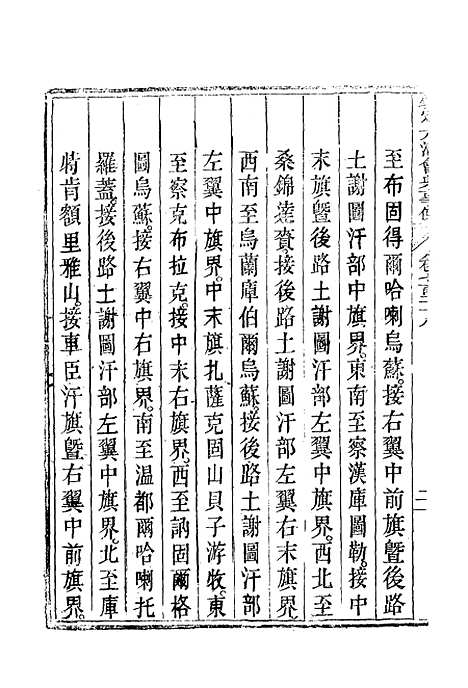 至布固得爾哈喇烏蘇接右翼中前旗曁後路
土謝圖汗部中旗界東南至察漢庫圖勒接中
末旗曁後路土謝圖汗部左翼中旗界西北至
桑錦達賚接後路土謝圖汗部左翼右末旗界
西南至烏蘭庫伯爾烏蘇接後路土謝圖汗部
左翼中旗界中末旗扎薩克固山貝子游牧東
至察克布拉克接中末右旗界西至訥固爾格
圖烏蘇接右翼中右旗界南至温都爾哈喇托
羅蓋接後路土謝圖汗部左翼中旗界北至庫
特肯額里雅山接車臣汗旗曁右翼中前旗界